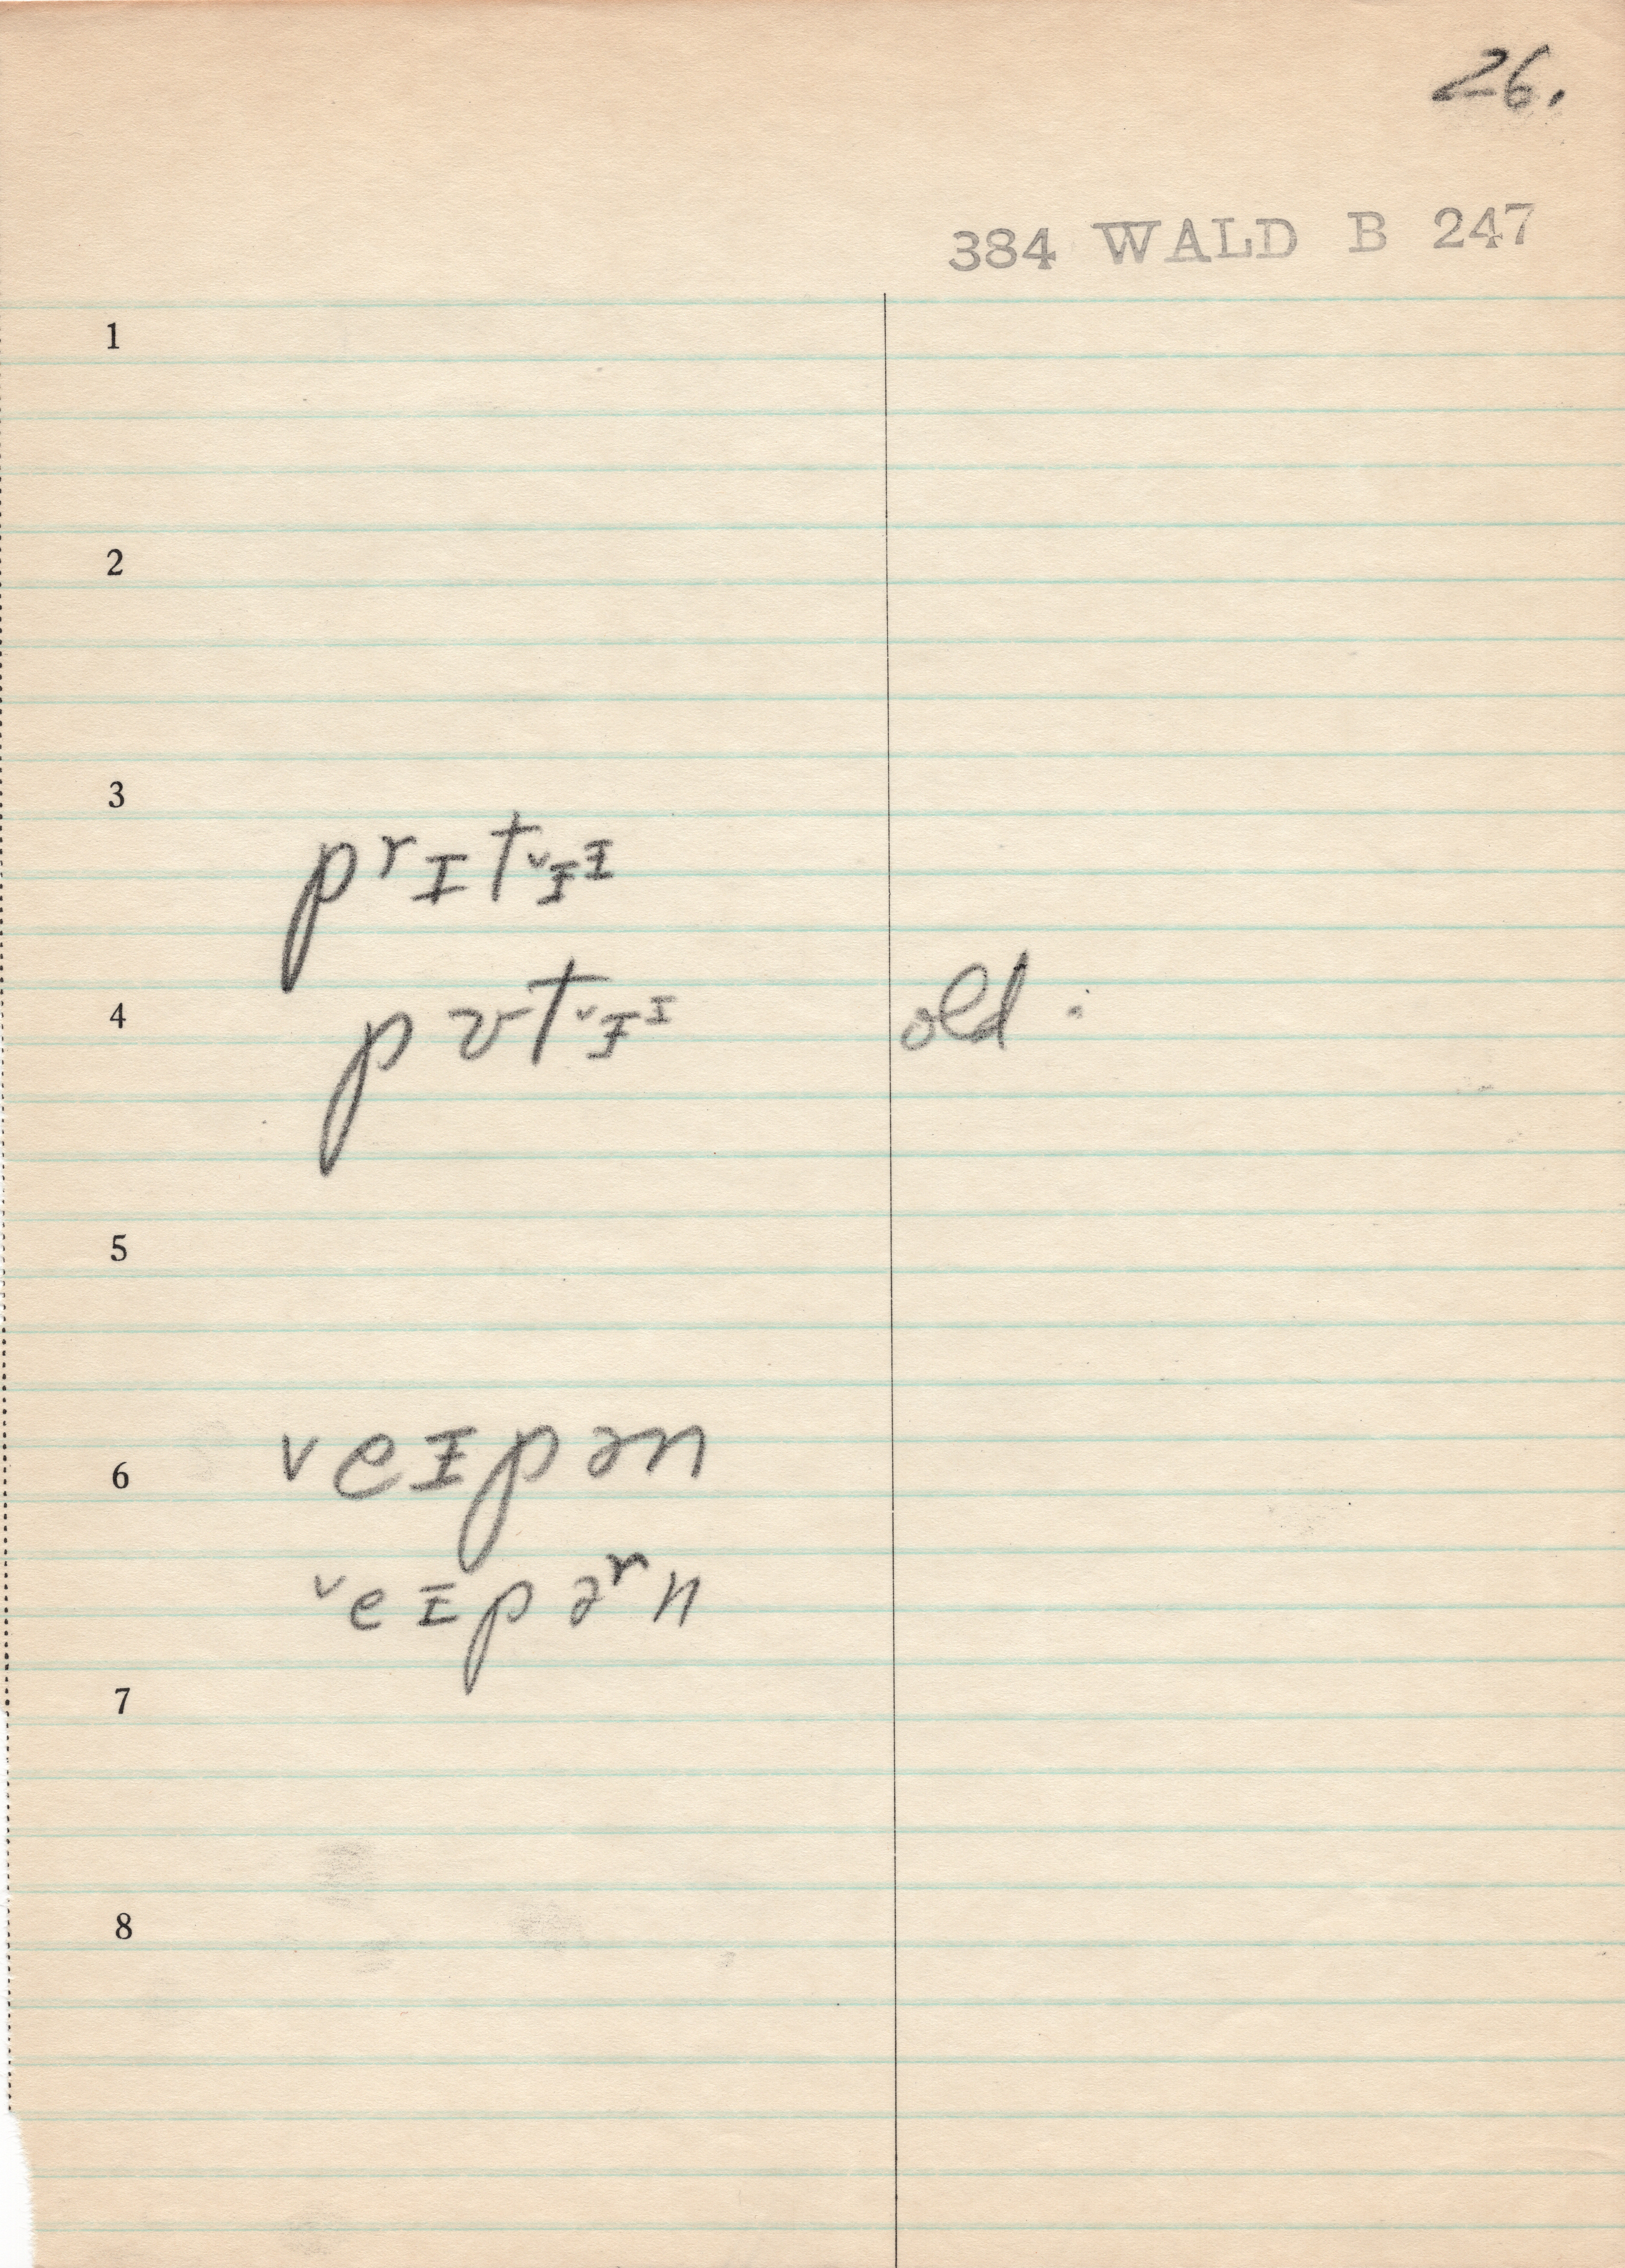 26.
384 WALD B 247
1
2
3
pʳɪtᵛɪᶦ
4 pʊtᵛɪᶦ old.
5
6 ᵛeɪpən
ᵛeɪpəʳn
7
8